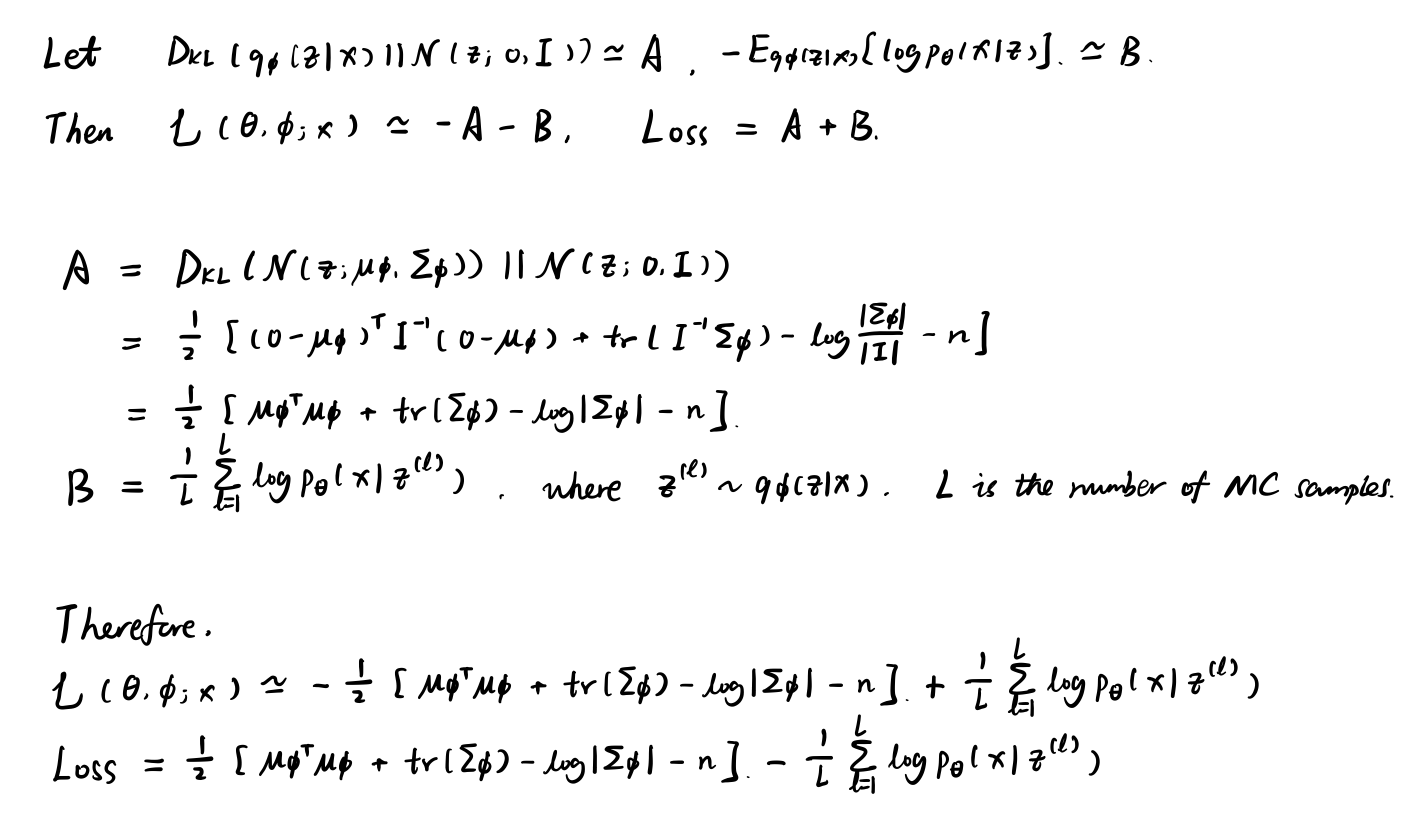 Let D_KL (qφ(z|x) || N(z; 0, I)) ≃ A, -E_qφ(z|x)[log pθ(x|z)]. ≃ B.
Then L(θ, φ; x) ≃ -A - B, Loss = A + B.
A = D_KL (N(z; μφ, Σφ)) || N(z; 0, I))
= 1/2 [(0-μφ)^T I^-1 (0-μφ) + tr(I^-1 Σφ) - log |Σφ|/|I| - n]
= 1/2 [μφ^T μφ + tr(Σφ) - log|Σφ| - n].
B = 1/L Σ_{l=1}^{L} log pθ(x|z^(l)), where z^(l) ~ qφ(z|x). L is the number of MC samples.
Therefore,
L(θ, φ; x) ≃ - 1/2 [μφ^T μφ + tr(Σφ) - log|Σφ| - n]. + 1/L Σ_{l=1}^{L} log pθ(x|z^(l))
Loss = 1/2 [μφ^T μφ + tr(Σφ) - log|Σφ| - n]. - 1/L Σ_{l=1}^{L} log pθ(x|z^(l))